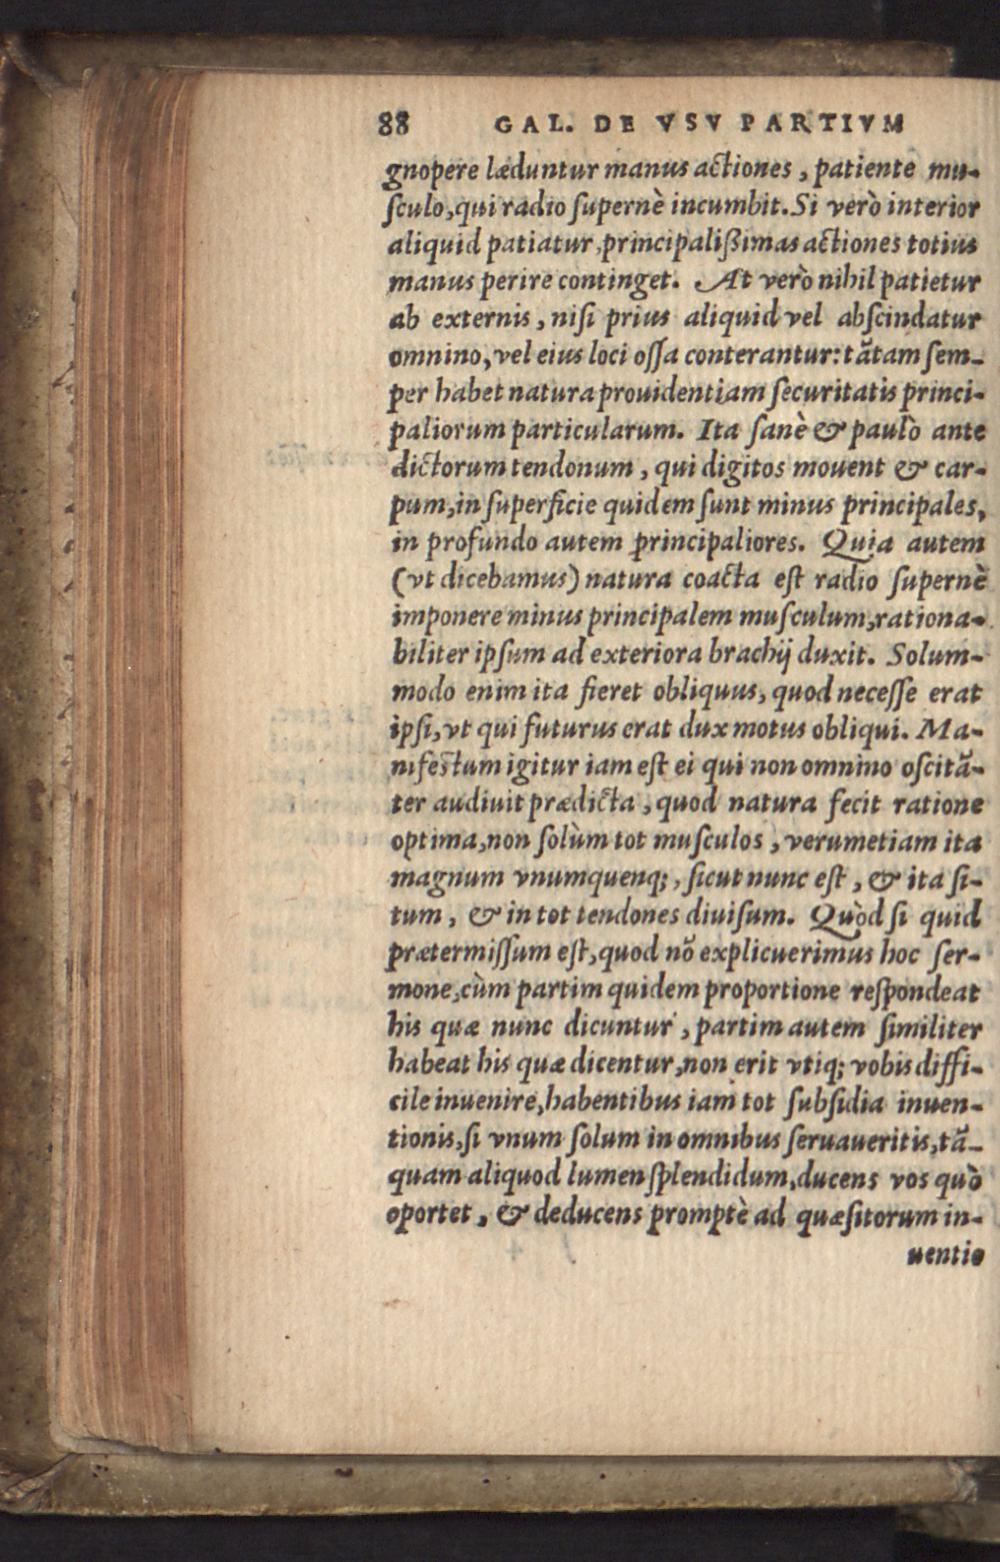 88 GAL. DE VSV PARTIVM
gnopere læduntur manus actiones, patiente mu-
sculo, qui radio supernè incumbit. Si verò interior
aliquid patiatur, principalißimas actiones totius
manus perire continget. At verò nihil patietur
ab externis, nisi prius aliquid vel abscindatur
omnino, vel eius loci ossa conterantur: tãtam sem-
per habet natura prouidentiam securitatis princi-
paliorum particularum. Ita sanè & paulò ante
dictorum tendonum, qui digitos mouent & car-
pum, in superficie quidem sunt minus principales,
in profundo autem principaliores. Quia autem
(vt dicebamus) natura coacta est radio supernè
imponere minus principalem musculum, rationa-
biliter ipsum ad exteriora brachij duxit. Solum-
modo enim ita fieret obliquus, quod necesse erat
ipsi, vt qui futurus erat dux motus obliqui. Ma-
nifestum igitur iam est ei qui non omnino oscitã-
ter audiuit prædicta, quod natura fecit ratione
optima, non solùm tot musculos, verumetiam ita
magnum vnumquenq;, sicut nunc est, & ita si-
tum, & in tot tendones diuisum. Quòd si quid
prætermissum est, quod nõ explicuerimus hoc ser-
mone, cùm partim quidem proportione respondeat
his quæ nunc dicuntur, partim autem similiter
habeat his quæ dicentur, non erit vtiq; vobis diffi-
cile inuenire, habentibus iam tot subsidia inuen-
tionis, si vnum solum in omnibus seruaueritis, tã-
quam aliquod lumen splendidum, ducens vos quò
oportet, & deducens promptè ad quæsitorum in-
uentio